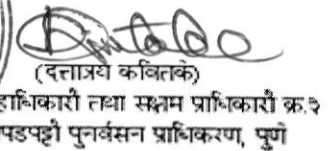 (दत्तात्रय कवितके)
हाधिकारी तथा सक्षम प्राधिकारी क्र.२
पडपट्टी पुनर्वसन प्राधिकरण, पुणे